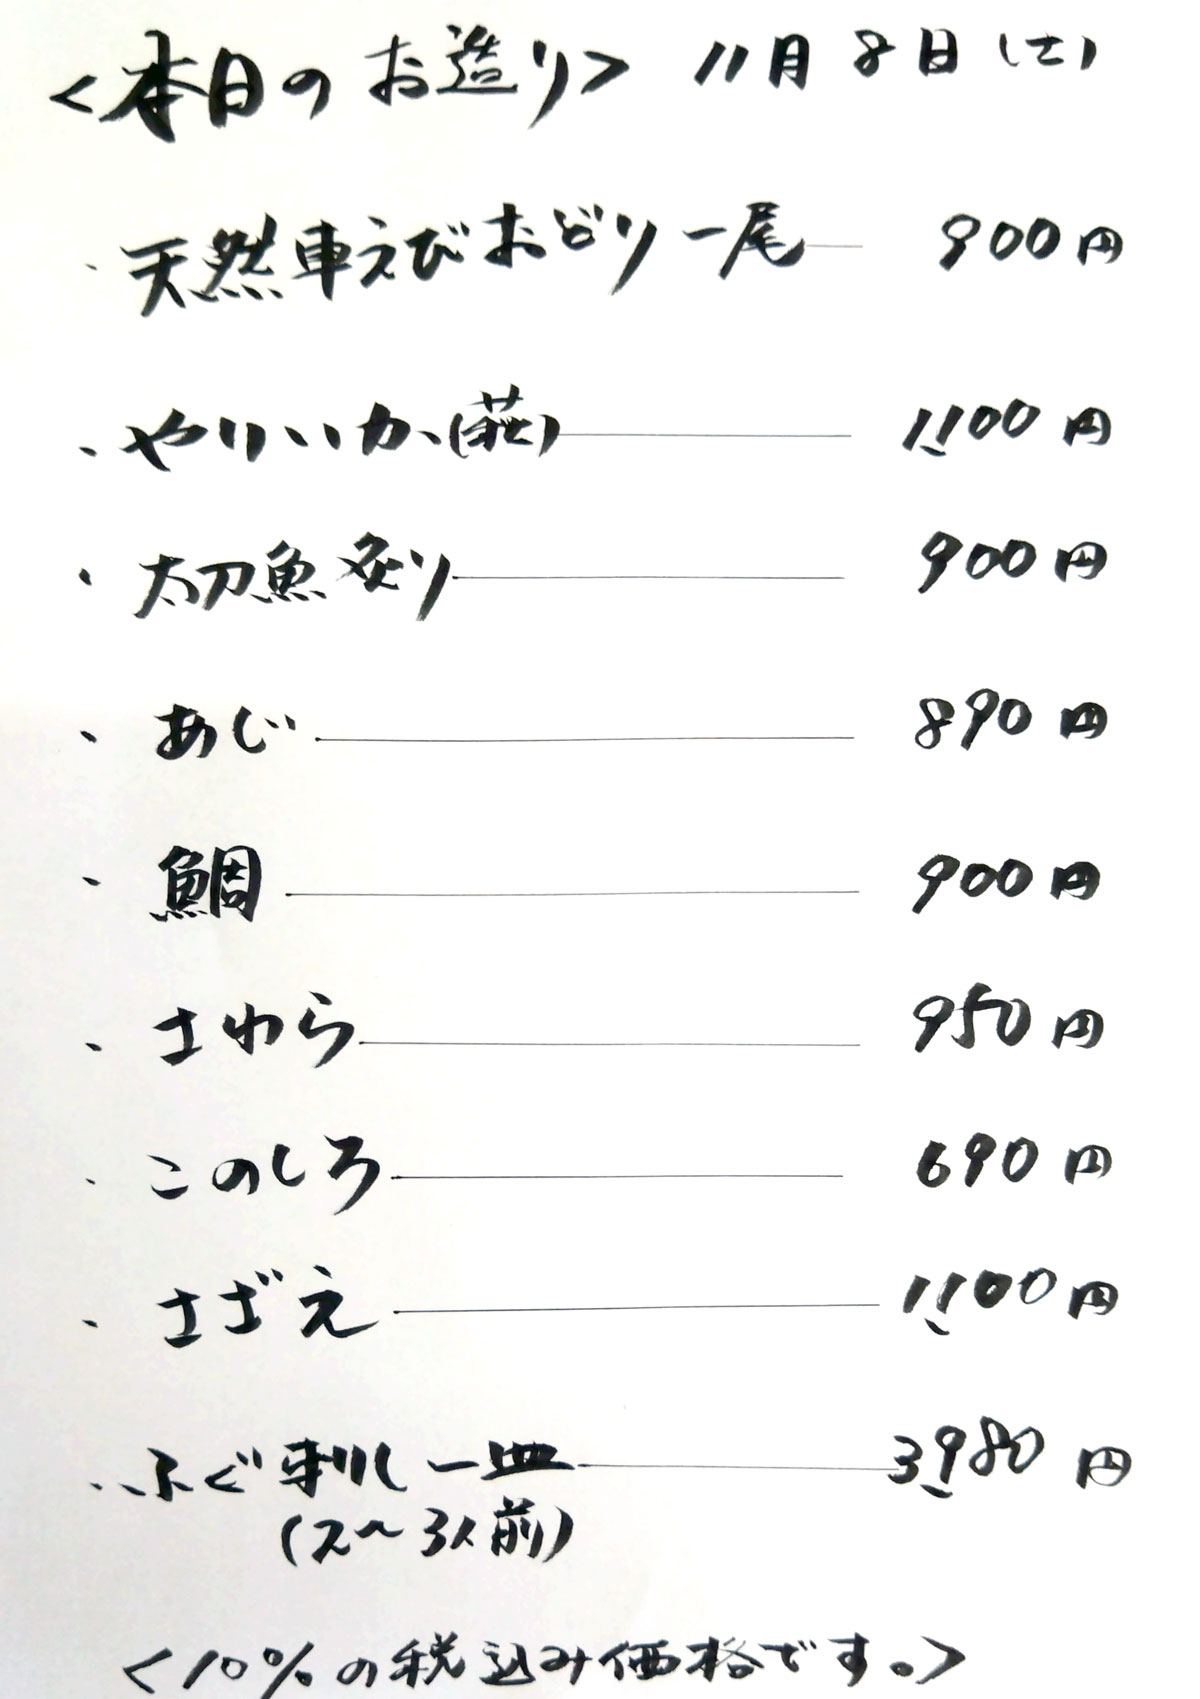 <本日のお造り> 11月8日(土)
・天然車えびおどり一尾 900円
・やりいか(萩) 1,100円
・太刀魚炙り 900円
・あじ 890円
・鯛 900円
・さわら 950円
・このしろ 690円
・さざえ 1,100円
・ふぐ刺し一皿 3,980円
(2〜3人前)
<10%の税込み価格です。>